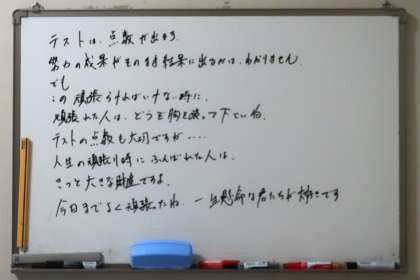 テストは、点数が出ます。
努力の成果がそのまま結果に出るかは、わかりません。
でも
この頑張らなければいけない時に、
頑張れた人は、どうぞ胸を張って下さいね。
テストの点数も大切ですが....
人生の頑張り時にふんばれた人は、
きっと大きな財産ですよ。
今日までよく頑張ったね 一生懸命な君たちが大好きです